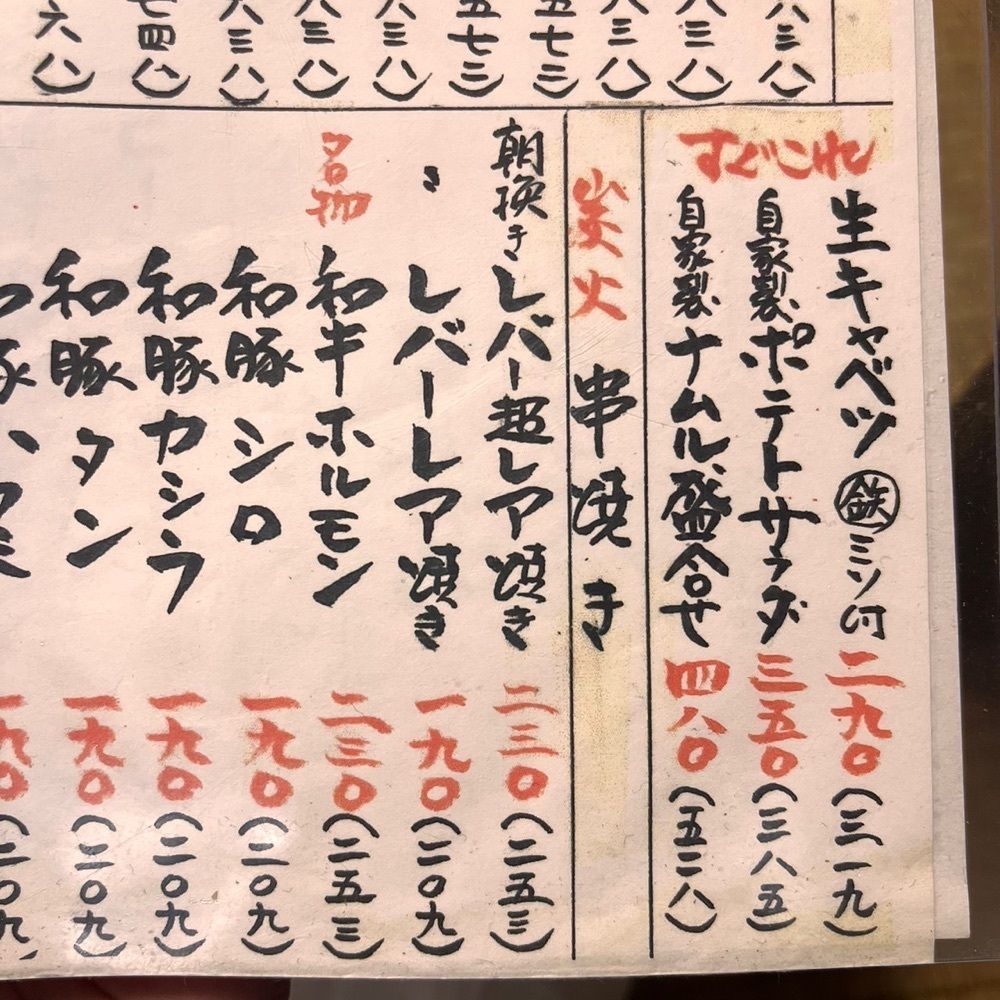 八三八)
八三八)
八三八)
五七三)
五七三)
八三八)
八三八)
八三八)
七四八)
六八)
すぐこれ
生キャベツ鉄ミソ付 二九〇(三一九)
自家製ポテトサラダ 三五〇(三八五)
自家製ナムル盛合せ 四八〇(五二八)
炭火 串焼き
朝挽きレバー超レア焼き 二三〇(二五三)
〃 レバーレア焼き 一九〇(二〇九)
名物 和牛ホルモン 二三〇(二五三)
和豚シロ 一九〇(二〇九)
和豚カシラ 一九〇(二〇九)
和豚タン 一九〇(二〇九)
和豚ハツ 一九〇(二〇九)